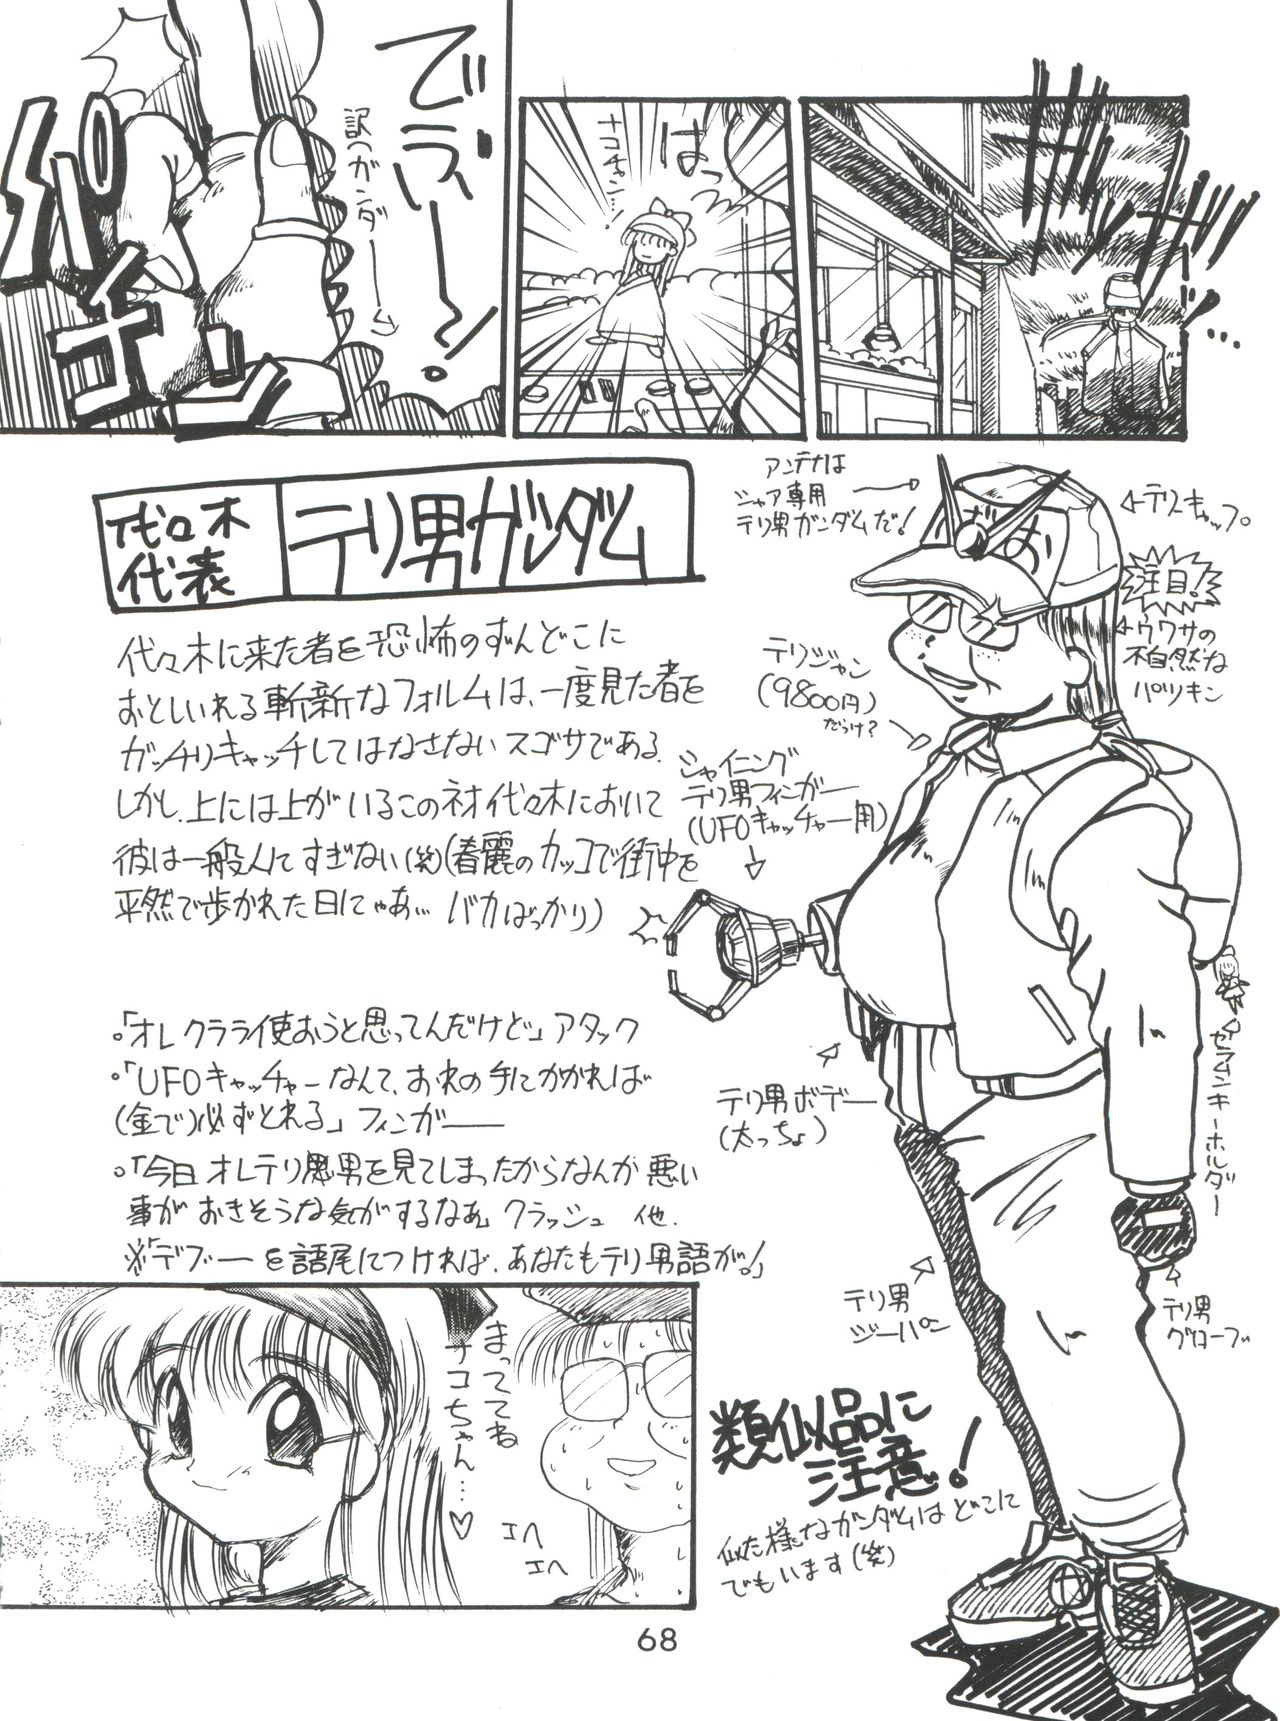 はっ
ナコチャン…!
でブーー!
訳(ガンダーム)
パチン
代々木
代表
テリ男ガンダム
代々木に来た者を恐怖のずんどこに
おとしいれる斬新なフォルムは、一度見た者を
ガッチリキャッチしてはなさないスゴサである。
しかし、上には上がいるこのネオ代々木において
彼は一般人にすぎない(笑)(春麗のカッコで街中を
平然で歩かれた日にゃあ… バカばっかり)
。「オレクラライ使おうと思ってんだけど」アタック
。「UFOキャッチャーなんて、おれの手にかかれば
(金で)必ずとれる」フィンガー
。「今日オレテリ男を見てしまったからなんか悪い
事がおきそうな気がするなあ」クラッシュ 他.
※「デブーーを語尾につければ、あなたもテリ男語が。」
アンテナは
シャア専用
テリ男ガンダムだ!
テリキャップ
注目!
ウワサの
不自然な
パツキン
テリジャン
(9800円)
だらけ?
シャイニング
テリ男フィンガー
(UFOキャッチャー用)
テリ男ボデー
(太っちょ)
セラムンキーホルダー
テリ男
ジーパン
テリ男
グローブ
類似品に
注意!
似た様なガンダムはどこに
でもいます(笑)
まっててね
ナコちゃん…♡
エヘ
エヘ
68